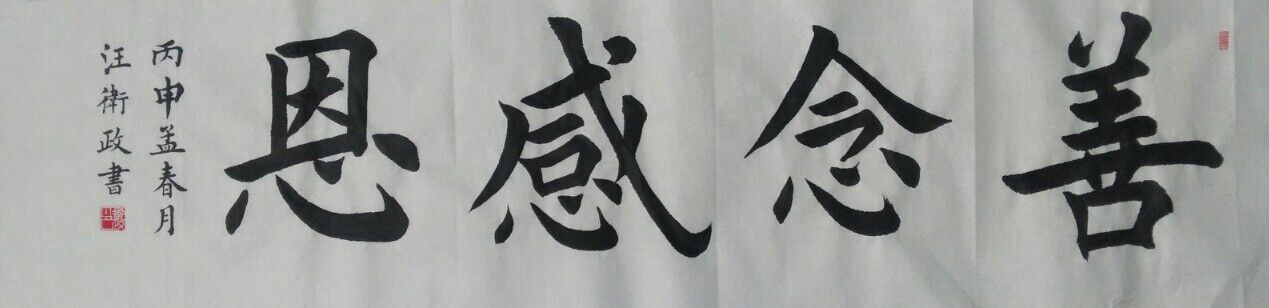 善念感恩
丙申孟春月
汪衛政書